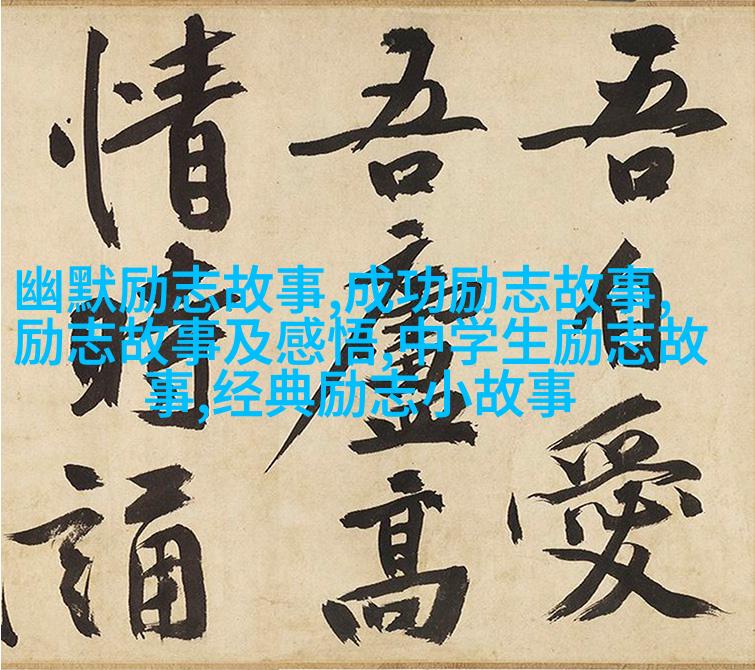 吾自愛
吾廬高
情時誦
幽默励志故事,成功励志故事,
励志故事及感悟,中学生励志故
事,经典励志小故事